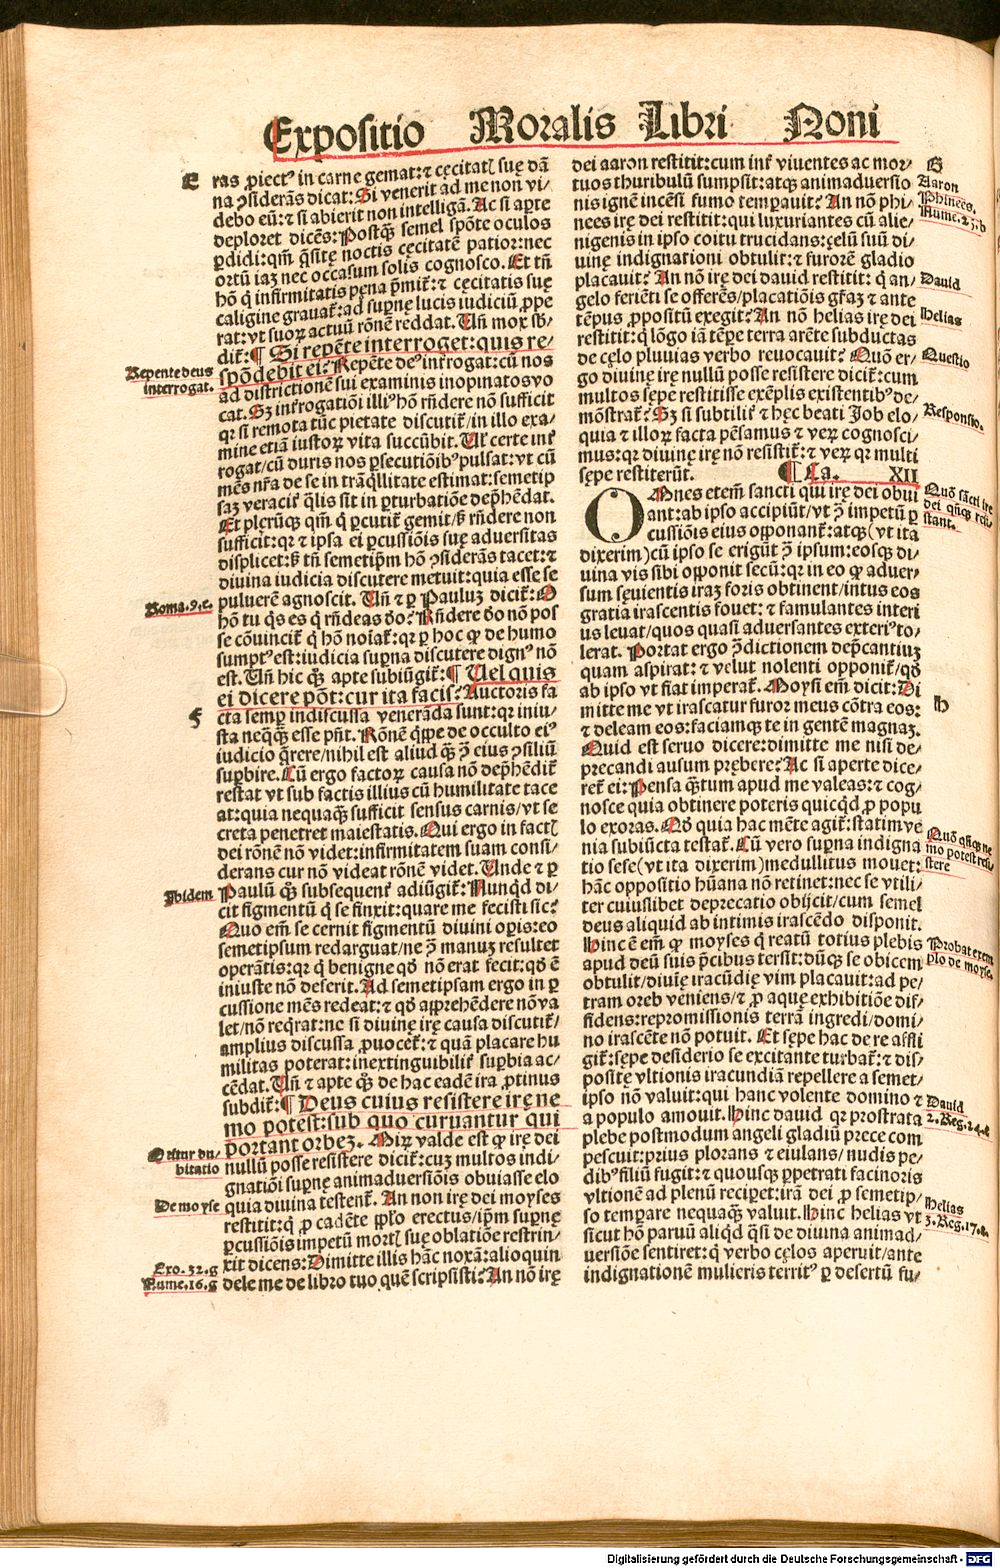 Expositio Moralis Libri Noni
E
ras ꝓiectꝰ in carne gemat: ⁊ cęcitatꝭ suę dā
na ꝯsiderās dicat: Si venerit ad me non vi/
debo eū: ⁊ si abierit non intelligā. Ac si aꝑte
deploret dicēs: Postꝙ̄ semel spōte oculos
ꝑdidi: qm̄ q̄sitę noctis cęcitatē patior: nec
ortū iaꝫ nec occasum solis cognosco. Et tn̄
hō q̇ infirmitatis pęna p̄mit᷑: ⁊ cęcitatis suę
caligine grauat᷑: ad suꝑnę lucis iudiciū ꝓpe
rat: vt suoꝝ actuū rōnē reddat. Un̄ mox sb̄/
dit᷑: ¶ Si repēte interroget: quis re/
Repente deus
interrogat.
spōdebit ei? Repēte deꝰ int᷑rogat: cū nos
ad districtionē sui examinis inopinatos vo
cat. Sꝫ int᷑rogatiōi illiꝰ hō rn̄dere nō sufficit
qꝛ si remota tūc pietate discutit᷑/in illo exa/
mine etiā iustoꝝ vita succūbit. Ul᷑ certe int᷑
rogat/cū duris nos ꝑsecutiōibꝰ pulsat: vt cū
mēs nr̄a de se in trāq̇llitate estimat: semetip
saꝫ veracit᷑ q̄lis sit in ꝑturbatiōe dep̄hēdat.
Et plerūqꝫ qm̄ q̇ ꝑcutit᷑ gemit/sꝫ rn̄dere non
sufficit: qꝛ ⁊ ipsa ei ꝑcussiōis suę aduersitas
displicet: sꝫ tn̄ semetip̄m hō ꝯsiderās tacet: ⁊
diuina iudicia discutere metuit: quia esse se
Roma. 9. e.
puluerē agnoscit. Un̄ ⁊ ꝑ Pauluꝫ dicit᷑: O
hō tu q̇s es q̇ rn̄deas deo? Rn̄dere deo nō pos
se cōuincit᷑ q̇ hō noīat᷑: qꝛ ꝑ hoc ꝙ de humo
sumptꝰ est: iudicia suꝑna discutere dignꝰ nō
est. Un̄ hic qꝙ̄ apte subiūgit᷑: ¶ Uel quis
ei dicere pōt: cur ita facis? Auctoris fa
F
cta semꝑ indiscussa venerāda sunt: qꝛ iniu/
sta neq̄qꝫ esse pn̄t. Rōnē q̇ppe de occulto eiꝰ
iudicio q̄rere/nihil est aliud qꝫ̄ ꝯ̄ eius ꝯsiliū
suꝑbire. Cū ergo factoꝝ causa nō dep̄hēdit᷑
restat vt sub factis illius cū humilitate tace
at: quia nequaqꝫ̄ sufficit sensus carnis/vt se
creta penetret maiestatis. Qui ergo in factꝭ
dei rōnē nō videt: infirmitatem suam consi/
derans cur nō videat rōnē videt. Unde ⁊ ꝑ
Ibidem
Paulū qꝫ̄ subsequent᷑ adiūgit᷑: Nunq̇d di/
cit figmentū q̇ se finxit: quare me fecisti sic?
Quo em̄ se cernit figmentū diuini oꝑis: eo
semetipsum redarguat/ne ꝯ̄ manuꝫ resultet
operātis: qꝛ q̇ benigne qd̄ nō erat fecit: qd̄ ē
iniuste nō deserit. Ad semetipsam ergo in ꝑ
cussione mēs redeat: ⁊ qd̄ apprehēdere nō va
let/nō req̇rat: ne si diuinę irę causa discutit᷑/
amplius discussa ꝓuocet᷑: ⁊ quā placare hu
militas poterat: inextinguibilit᷑ suꝑbia ac/
cēdat. Un̄ ⁊ apte qꝫ̄ de hac eadē ira ꝓtinus
subdit᷑: ¶ Deus cuius resistere irę ne
mo potest: sub quo curuantur qui
Oritur du/
bitatio
portant orbeꝫ. Miꝝ valde est ꝙ irę dei
nullū posse resistere dicit᷑: cuꝫ multos indi/
gnatiōi suꝑnę animaduersiōis obuiasse elo
De moyse
quia diuina testent᷑. An non irę dei moyses
restitit: q̇ ꝓ cadēte pp̄lo erectus/ip̄m suꝑnę
ꝑcussiōis impetū mortꝭ suę oblatiōe restrin/
Exo. 32. g
xit dicens: Dimitte illis hāc noxā: alioquin
Nume. 16. g
dele me de libro tuo quē scripsisti? An nō irę
dei aaron restitit: cum int᷑ viuentes ac mor/
G
Aaron
tuos thuribulū sumpsit: atqꝫ animaduersio
Phinees.
Nume. 25. b
nis ignē incēsi fumo temꝑauit? An nō phi/
nees irę dei restitit: qui luxuriantes cū alie/
nigenis in ipso coitu trucidans: ȩelū suū di/
uinę indignationi obtulit: ⁊ furorē gladio
Dauid
placauit? An nō irę dei dauid restitit: q̇ an/
gelo feriēti se offerēs/placatiōis gr̄aꝫ ⁊ ante
Helias
tēpus ꝓpositū exegit? An nō helias irę dei
restitit: q̇ lōgo iā tēꝑe terra arēte subductas
Questio
de cęlo pluuias verbo reuocauit? Quō er/
go diuinę irę nullū posse resistere dicit᷑: cum
multos sępe restitisse exēplis existentibꝰ de/
Responsio.
mōstrat᷑? Sꝫ si subtilit᷑ ⁊ hęc beati Job elo/
quia ⁊ illoꝝ facta pēsamus ⁊ veꝝ cognosci/
mus: qꝛ diuinę irę nō resistit᷑: ⁊ veꝝ qꝛ multi
sępe restiterūt. ¶ Ca. XII
Quō sācti ire
dei qn̄qꝫ resi/
stant.
OMnes etem̄ sancti qui irę dei obui
ant: ab ipso accipiūt/vt ꝯ̄ impetū ꝑ
cussiōis eius opponant᷑: atqꝫ (vt ita
dixerim) cū ipso se erigūt ꝯ̄ ipsum: eosqꝫ di/
uina vis sibi opponit secū: qꝛ in eo ꝙ aduer/
sum sęuientis iraꝫ foris obtinent/intus eos
gratia irascentis fouet: ⁊ famulantes interi
us leuat/quos quasi aduersantes exteriꝰ to/
lerat. Portat ergo ꝯ̄dictionem dep̄cantiuꝫ
quam aspirat: ⁊ velut nolenti opponit᷑/qd̄
ab ipso vt fiat imperat᷑. Moysi em̄ dicit: Di
H
mitte me vt irascatur furor meus cōtra eos:
⁊ deleam eos: faciamqꝫ te in gentē magnaꝫ.
Quid est seruo dicere: dimitte me nisi de/
precandi ausum prębere? Ac si aperte dice/
ret᷑ ei: Pensa qꝫ̄tum apud me valeas: ⁊ cog/
nosce quia obtinere poteris quicq̇d ꝓ popu
lo exoras. Qd̄ quia hac mēte agit᷑: statim ve
Quō
mo potest resi/
stere
nia subiūcta testat᷑. Cū vero suꝑna indigna
tio sese (vt ita dixerim) medullitus mouet:
hāc oppositio hūana nō retinet: nec se vtili/
ter cuiuslibet deprecatio obijcit/cum semel
deus aliquid ab intimis irascēdo disponit.
Probat exem
plo de moyse.
Hinc ē em̄ ꝙ moyses q̇ reatū totius plebis
apud deū suis p̄cibus tersit: dūqꝫ se obicem
obtulit/diuię iracūdię vim placauit: ad pe/
tram oreb veniens/⁊ ꝓ aquę exhibitiōe dif/
fidens: repromissionis terrā ingredi/domi/
no irascēte nō potuit. Et sępe hac de re affli
git᷑: sępe desiderio se excitante turbat᷑: ⁊ dis/
positę vltionis iracundiā repellere a semet/
Dauid
2. Reg. 24. d
ipso nō valuit: qui hanc volente domino ⁊
a populo amouit. Hinc dauid qꝛ prostrata
plebe postmodum angeli gladiū prece com
pescuit: prius plorans ⁊ eiulans/nudis pe/
dibꝰ filiū fugit: ⁊ quousqꝫ ꝑpetrati facinoris
vltionē ad plenū recipet: irā dei ꝓ semetip/
Helias
3. Reg. 17. a.
so temꝑare nequaqꝫ̄ valuit. Hinc helias vt
sicut hō paruū aliq̇d q̄si de diuina animad/
uersiōe sentiret: q̇ verbo cęlos aperuit/ante
indignationē mulieris territꝰ ꝑ desertū fu/
Digitalisierung gefördert durch die Deutsche Forschungsgemeinschaft - DFG